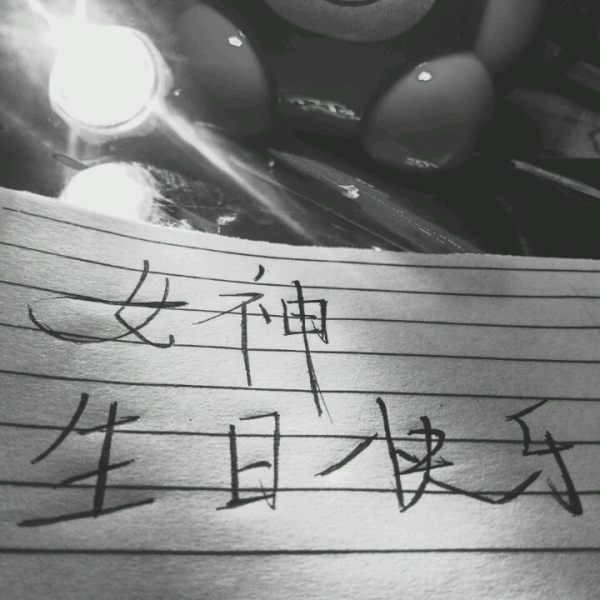 女神
生日快乐